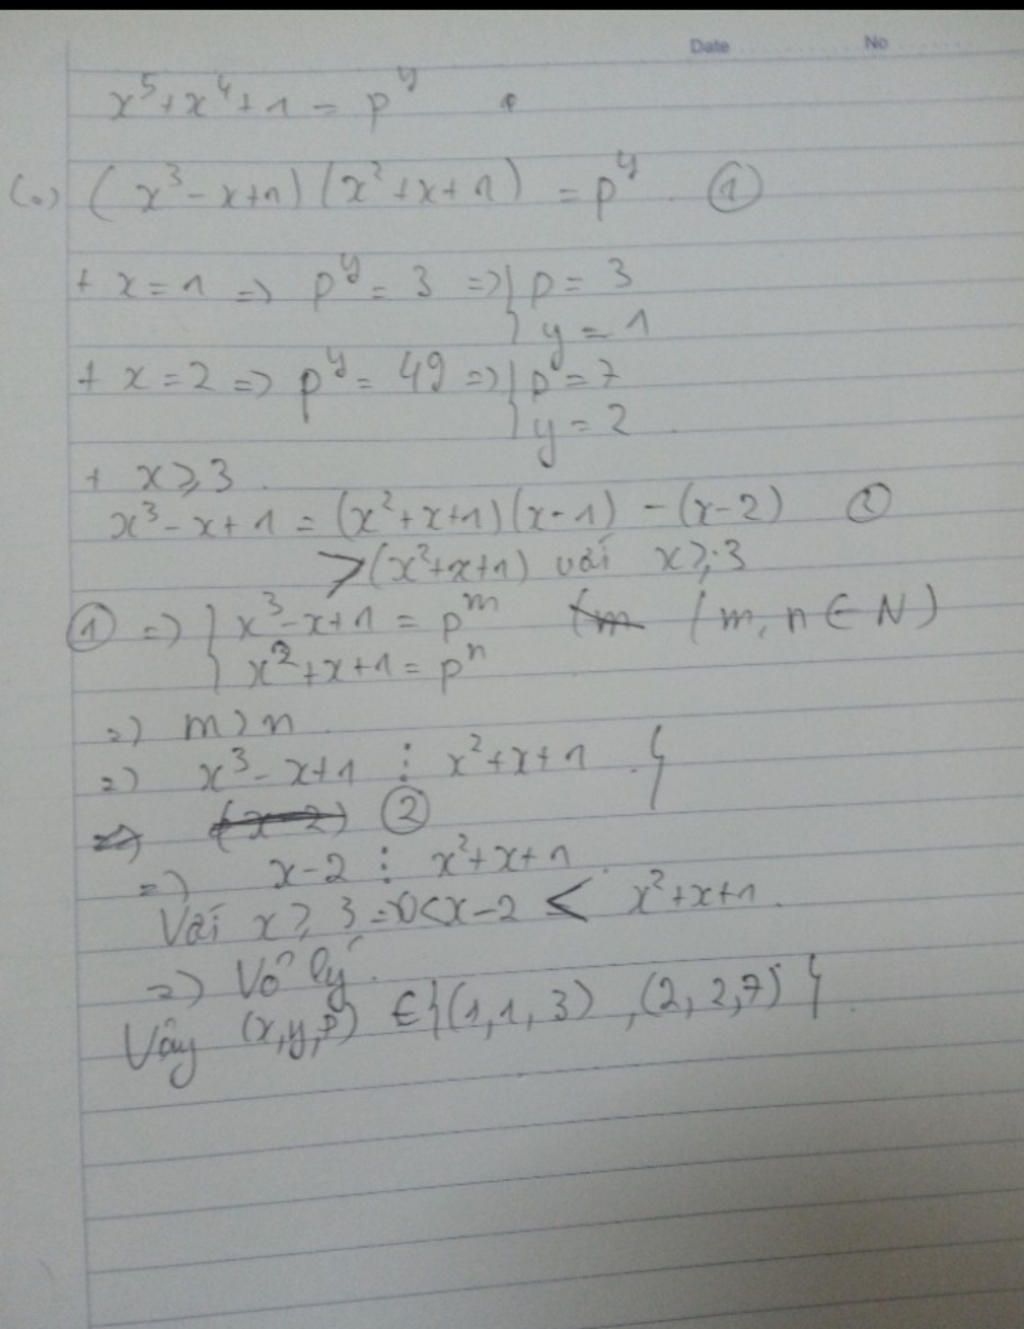 Date No
x⁵+x⁴+1 = p^y
(=) (x³-x+1)(x²+x+1) = p^y ①
+ x=1 => p^y = 3 => { p = 3
{ y = 1
+ x=2 => p^y = 49 => { p = 7
{ y = 2
+ x ⩾ 3.
x³-x+1 = (x²+x+1)(x-1) - (x-2) ②
> (x²+x+1) với x ⩾ 3
① => { x³-x+1 = p^m (m, n ∈ N)
{ x²+x+1 = p^n
=) m > n
=) x³-x+1 ⋮ x²+x+1 . }
②
=) x-2 ⋮ x²+x+1.
Với x ⩾ 3 => 0<x-2 < x²+x+1.
=) Vô lý.
Vậy (x,y,p) ∈ {(1,1,3), (2,2,7)}.